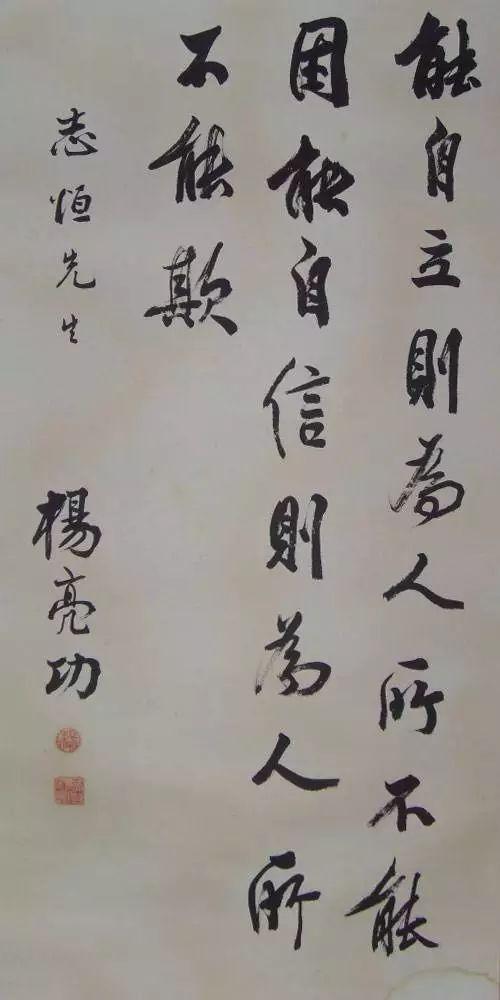 能自立則為人所不能
困能自信則為人所
不能欺
志恒先生
楊亮功